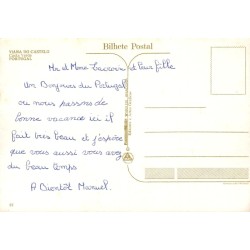 VIANA DO CASTELO
PORTUGAL
Bilhete Postal
Mr et Mme et leur fille
Un Bonjours du Portugal
ou nous passons de
bonne vacance ici il
fait très beau et j'espère
que vous aussi vous avez
du beau temps
A Bientôt Manuel.